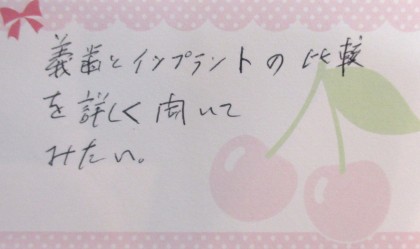 義歯とインプラントの比較
を詳しく聞いて
みたい。